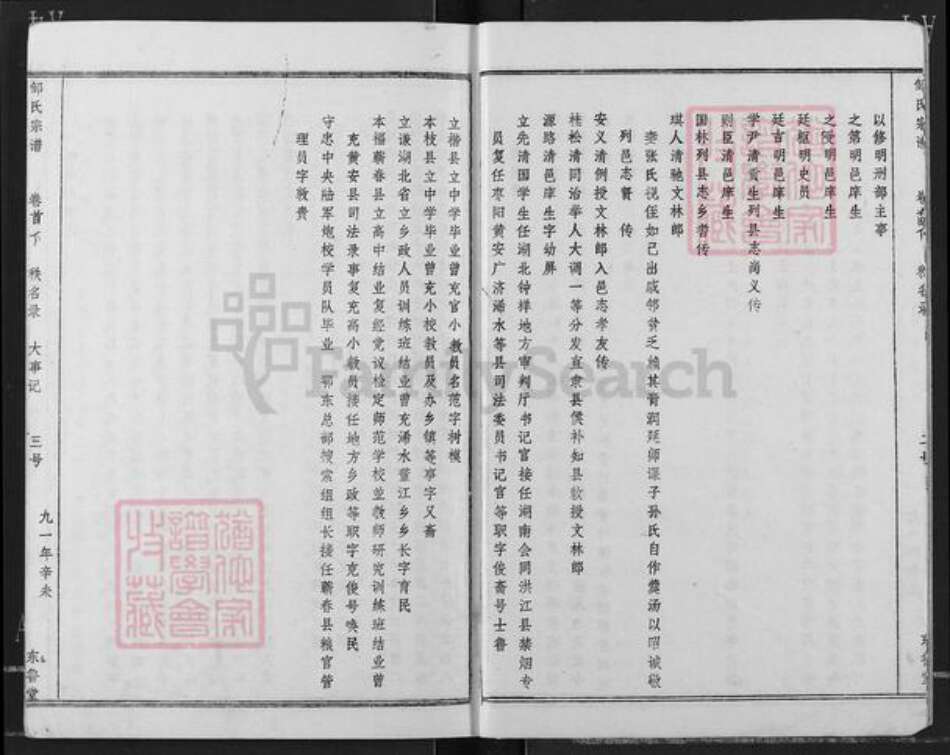 以修明刑部主事
之第明邑庠生
之陵明邑庠生
廷枢明史员
廷吉明邑庠生
学尹清贡生列县志尚义传
则臣清邑庠生
国林列县志乡耆传
琪人清驰文林郎
妻张氏视侄如己出戚邻贫乏赖其资润延师课子孙氏自作羹汤以昭诚敬
列邑志贤 传
安义清例授文林郎入邑志孝友传
桂松清同治举人大调一等分发直隶县侯补知县敕授文林郎
源路清邑庠生字幼屏
立先清国学生任湖北钟祥地方审判厅书记官接任湖南会同洪江县禁烟专
员复任枣阳黄安广济浠水等县司法委员书记官等职字俊斋号士鲁
立楷县立中学毕业曾充官小教员名范字树模
本枝县立中学毕业曾充小校教员及办乡镇等事字又斋
立谦湖北省立乡政人员训练班结业曾充浠水董江乡乡长字育民
本福蕲春县立高中结业复经党议检定师范学校并教师研究训练班结业曾
充黄安县司法录事复充高小教员接任地方乡政等职字克俊号唤民
守忠中央陆军炮校学员队毕业 鄂东总部搜索组组长接任蕲春县粮官管
理员字敦贵
邹氏宗谱 卷首下 秩名录 大事记 三号 九一年辛未 东鲁堂
FamilySearch